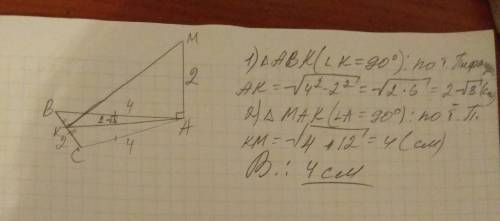 M
2
B
4
A
K
2√3
2
4
C
1) △ABK(∠K=90°): по т. Пифаг
AK=√4²-2²=√2·6=2√3(см)
2) △MAK(∠A=90°): по т. П.
KM=√4+12=4(см)
В.: 4 см